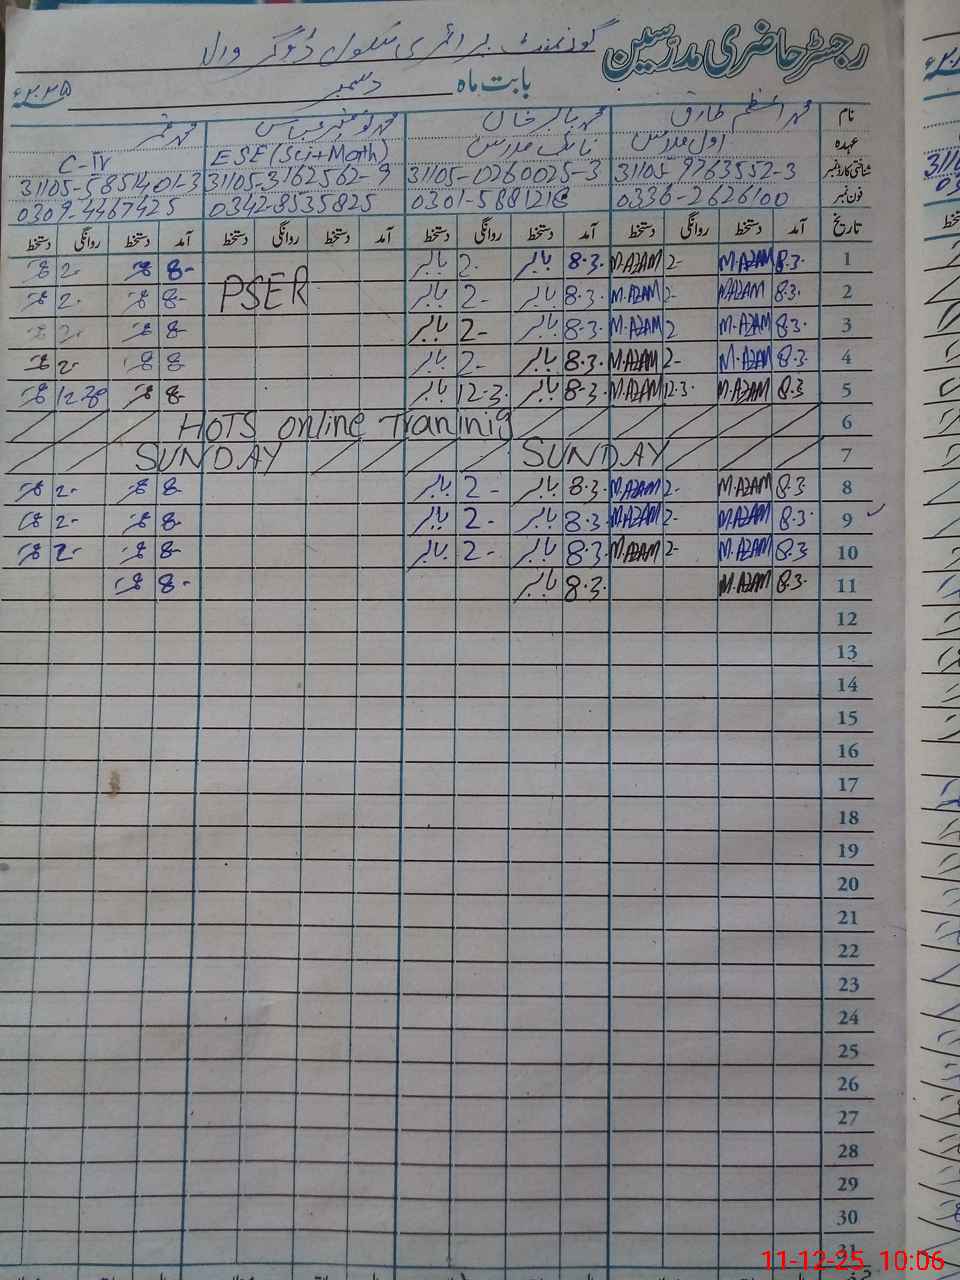 رجسٹر حاضری مدرسین گورنمنٹ پرائمری سکول ڈوگر والا
بابت ماہ دسمبر ۲۰۲۵ء
نام محمد اعظم طارق محمد بابر خان محمد عمر
عہدہ اول مدرس نائب مدرس ESE (Sci+Math) C-Tr
شناختی کارڈ نمبر 31105-9763552-3 31105-0260025-3 31105-3162562-9 31105-5851401-3
فون نمبر 0336-2626100 0301-5881218 0342-8535825 0309-4467425
تاریخ آمد دستخط روانگی دستخط آمد دستخط روانگی دستخط آمد دستخط روانگی دستخط آمد دستخط روانگی دستخط
1 8.3. M.AZAM 2- M.AZAM 8.3. بابر 2. بابر 8- عمر 2- عمر
2 8.3. M.AZAM 2- M.AZAM 8.3. بابر 2- بابر PSER 8- عمر 2- عمر
3 8.3. M.AZAM 2 M.AZAM 8.3. بابر 2- بابر 8- عمر 2- عمر
4 8.3. M.AZAM 2- M.AZAM 8.3. بابر 2- بابر 8- عمر 2- عمر
5 8.3 M.AZAM 12.3. M.AZAM 8.3. بابر 12.3. بابر 8- عمر 12.30 عمر
6 HOTS online Traninig
7 SUNDAY SUNDAY
8 8.3 M.AZAM 2- M.AZAM 8.3. بابر 2- بابر 8- عمر 2- عمر
9 8.3. M.AZAM 2- M.AZAM 8.3. بابر 2- بابر 8- عمر 2- عمر
10 8.3. M.AZAM 2- M.AZAM 8.3. بابر 2- بابر 8- عمر 2- عمر
11 8.3. M.AZAM 8.3. بابر 8- عمر
12
13
14
15
16
17
18
19
20
21
22
23
24
25
26
27
28
29
30
31
11-12-25 10:06